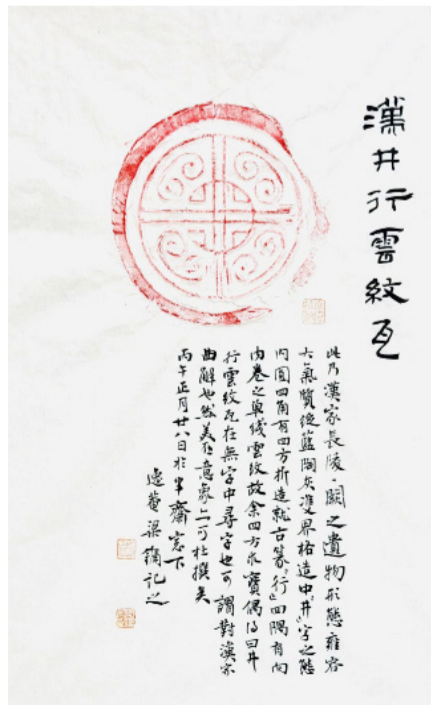 漢井行雲紋瓦
此乃漢家長陵、闕之遺物形態雍容
大氣質後藍陶灰雙界格造中「井」字之態
內圓四角有四方折造就古篆「行」四隅有向
內卷之單线雲紋故余四方求寶偶得曰井
行雲紋瓦在無字中尋字也可謂對漢宗
曲解也然美好意象上可杜撰矣
丙午正月廿八日於半齋窓下
邊菴梁鏑記之